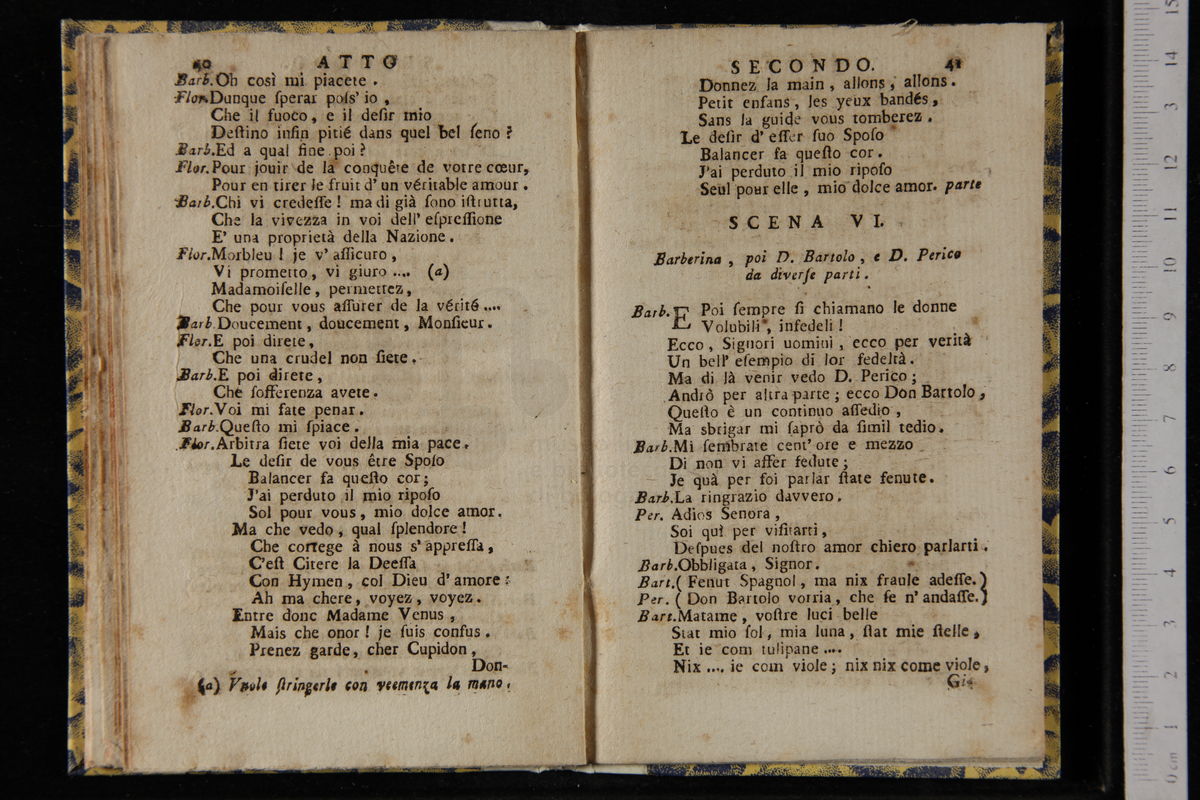 40 ATTO
Barb. Oh così mi piacete.
Flor. Dunque ſperar poſs' io,
Che il fuoco, e il deſir mio
Deſtino inſin pitié dans quel bel ſeno?
Barb. Ed a qual fine poi?
Flor. Pour jouir de la conquête de votre cœur,
Pour en tirer le fruit d' un véritable amour.
Barb. Chi vi credeſſe! ma di già ſono iſtrutta,
Che la vivezza in voi dell' eſpreſſione
E' una proprietà della Nazione.
Flor. Morbleu! je v' aſſicuro,
Vi prometto, vi giuro .... (a)
Madamoiſelle, permettez,
Che pour vous aſſurer de la vérité ....
Barb. Doucement, doucement, Monſieur.
Flor. E poi direte,
Che una crudel non ſiete.
Barb. E poi direte,
Che ſofferenza avete.
Flor. Voi mi fate penar.
Barb. Queſto mi ſpiace.
Flor. Arbitra ſiete voi della mia pace.
Le deſir de vous être Spoſo
Balancer fa queſto cor;
J'ai perduto il mio ripoſo
Sol pour vous, mio dolce amor.
Ma che vedo, qual ſplendore!
Che cortege à nous s' appreſſa,
C'eſt Citere la Deeſſa
Con Hymen, col Dieu d' amore:
Ah ma chere, voyez, voyez.
Entre donc Madame Venus,
Mais che onor! je ſuis confus.
Prenez garde, cher Cupidon,
Don-
(a) Vuole ſtringerle con veemenza la mano.
SECONDO. 41
Donnez la main, allons, allons.
Petit enfans, les yeux bandés,
Sans la guide vous tomberez.
Le deſir d' eſſer ſuo Spoſo
Balancer fa queſto cor.
J'ai perduto il mio ripoſo
Seul pour elle, mio dolce amor. parte
SCENA VI.
Barberina, poi D. Bartolo, e D. Perico
da diverſe parti.
Barb. E Poi ſempre ſi chiamano le donne
Volubili, infedeli!
Ecco, Signori uomini, ecco per verità
Un bell' eſempio di lor fedeltà.
Ma di là venir vedo D. Perico;
Andrò per altra parte; ecco Don Bartolo,
Queſto è un continuo aſſedio,
Ma sbrigar mi ſaprò da ſimil tedio.
Barb. Mi ſembrate cent' ore e mezzo
Di non vi affer fedute;
Je quà per foi parlar ſtate fenute.
Barb. La ringrazio davvero.
Per. Adios Senora,
Soi quì per viſitarti,
Deſpues del noſtro amor chiero parlarti.
Barb. Obbligata, Signor.
Bart. (Fenut Spagnol, ma nix fraule adeſſe.)
Per. (Don Bartolo vorria, che ſe n' andaſſe.)
Bart. Matame, voſtre luci belle
Stat mio ſol, mia luna, ſtat mie ſtelle,
Et ie com tulipane ....
Nix .... ie com viole; nix nix come viole,
Gi-